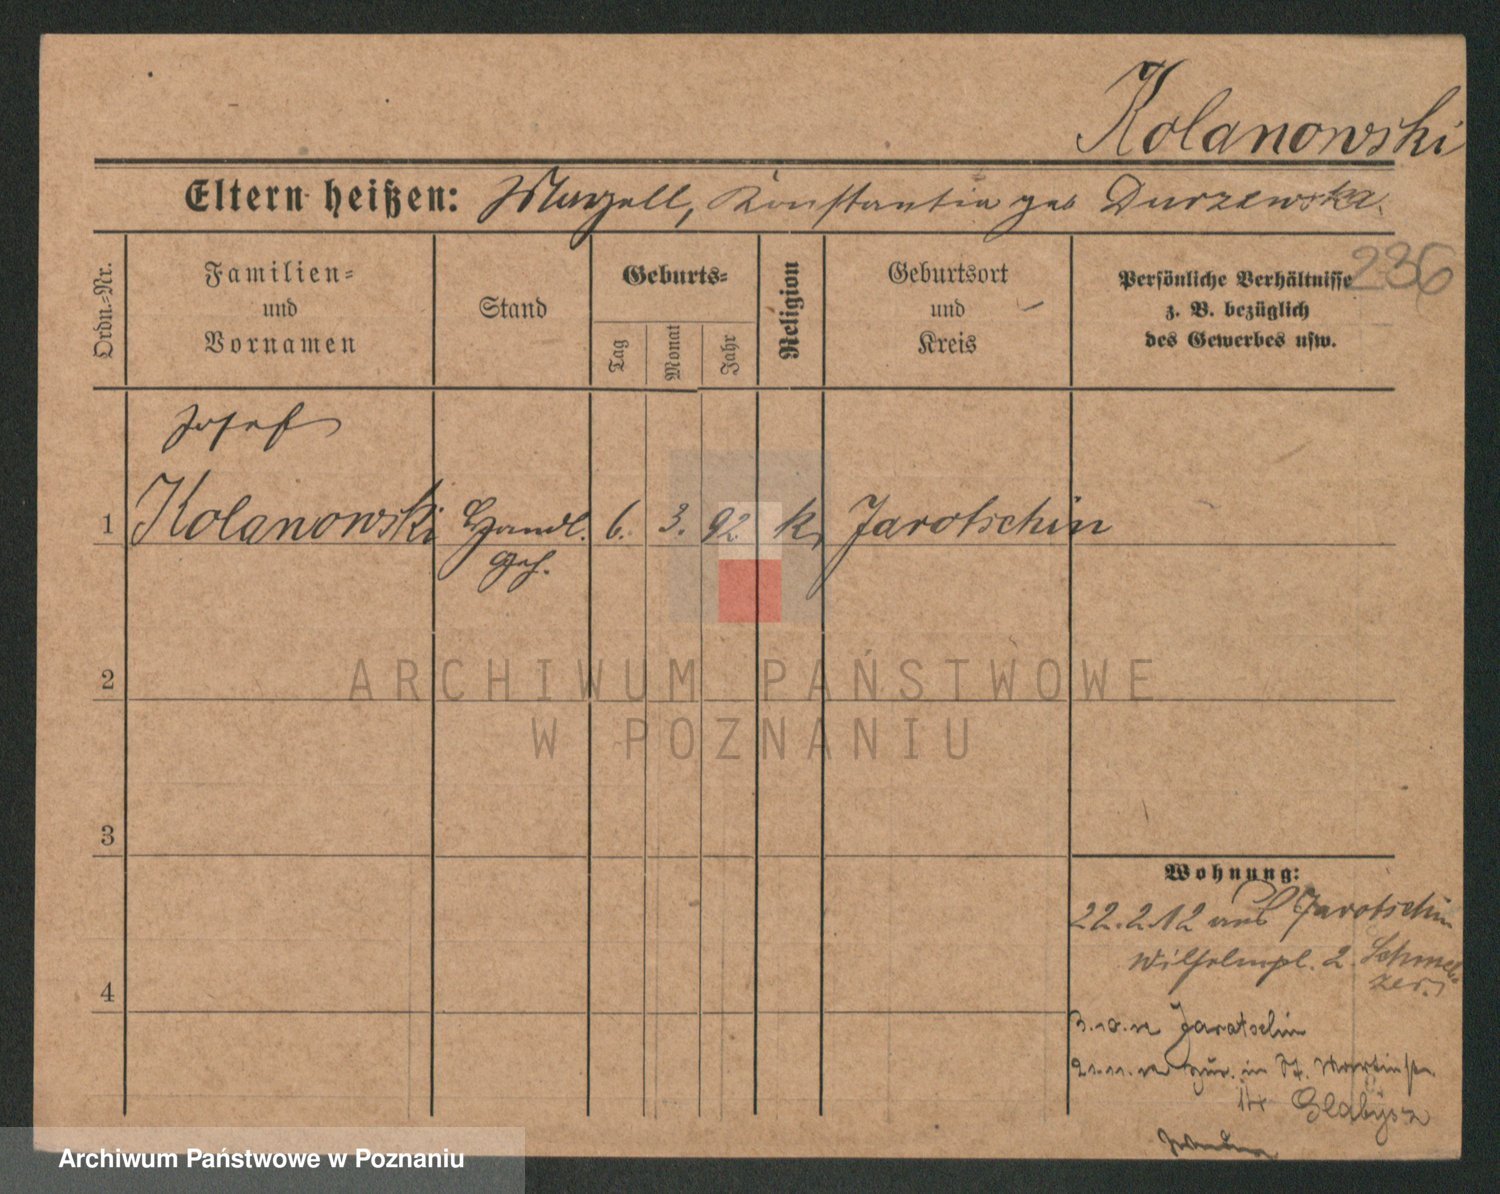 Kolanowski
Eltern heißen: Marzell, Konstantia geb Durzewska.
236
Ordn.-Nr.
Familien-
und
Vornamen
Stand
Geburts-
Tag
Monat
Jahr
Religion
Geburtsort
und
Kreis
Persönliche Verhältnisse
z. B. bezüglich
des Gewerbes usw.
Josef
1 Kolanowski Handl. 6. 3. 92 k. Jarotschin
Geh.
2
3
4
Wohnung:
22.2.12 aus Jarotschin
Wilhelmpl. 2. Schmel-
zer.
3.10.12 Jarotschin
21.11.12 zur. in St. Martinstr.
Glabysz
ARCHIWUM PAŃSTWOWE
W POZNANIU
Archiwum Państwowe w Poznaniu